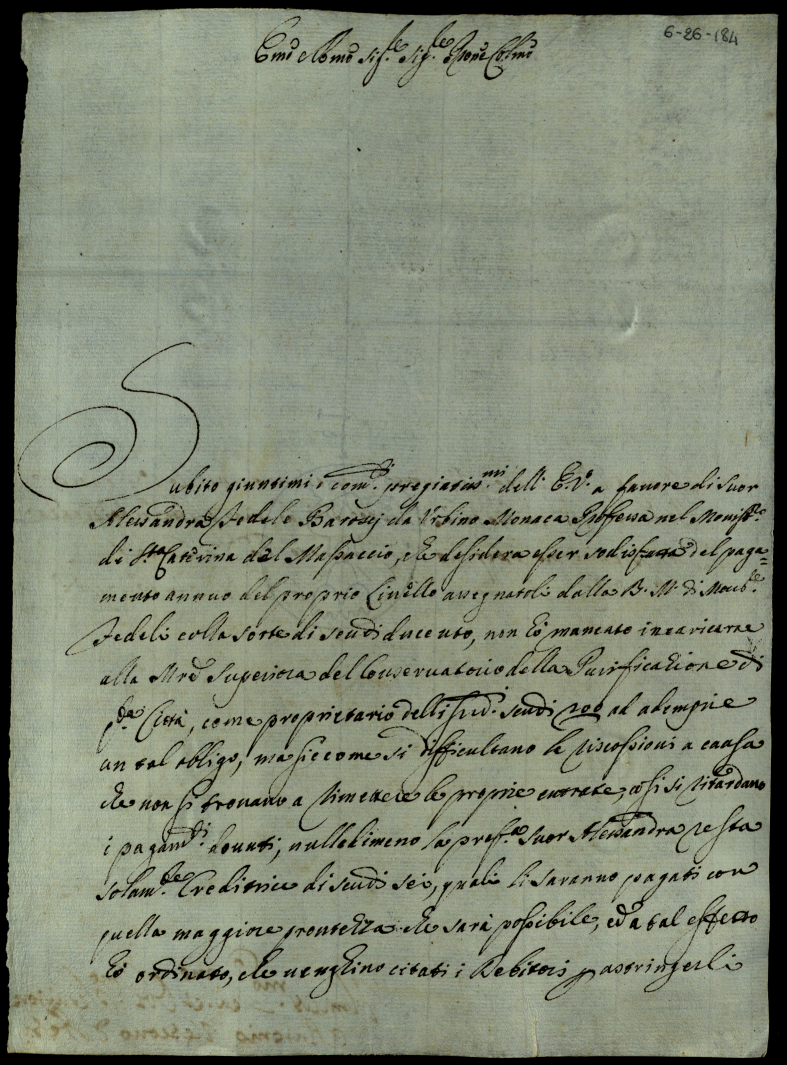 6-26-184
Em̃o e Rm̃o Sig.re Sig.re Prone Col.mo
Subito giuntimi i com.di pregiatiss.mi dell' E.V. a favore di Suor
Alessandra Fedele Baroccj da Urbino Monaca Professa nel Monist.ro
di S.ta Caterina del Massaccio, che desidera esser sodisfatta del paga=
mento annuo del proprio Livello assegnatole dalla B. M. di Mons.re
Fedeli colla sorte di scudi ducento, non hò mancato incaricarne
alla Mrẽ Superiora del Conservatorio della Purificazione di
q.ta Città, come proprietario delli sud.i scudi 200 ad adempire
un tal obligo, ma siccome si difficultano le riscossioni a causa
che non si trovano a rimettere le proprie entrate, così si ritardano
i pagam.ti dovuti, nulladimeno la pref.ta Suor Alessandra resta
solam.te Creditrice di scudi sei, quali li saranno pagati con
quella maggiore prontezza che sarà possibile, ed a tal effetto
hò ordinato, che venghino citati i Debitori p astringerli